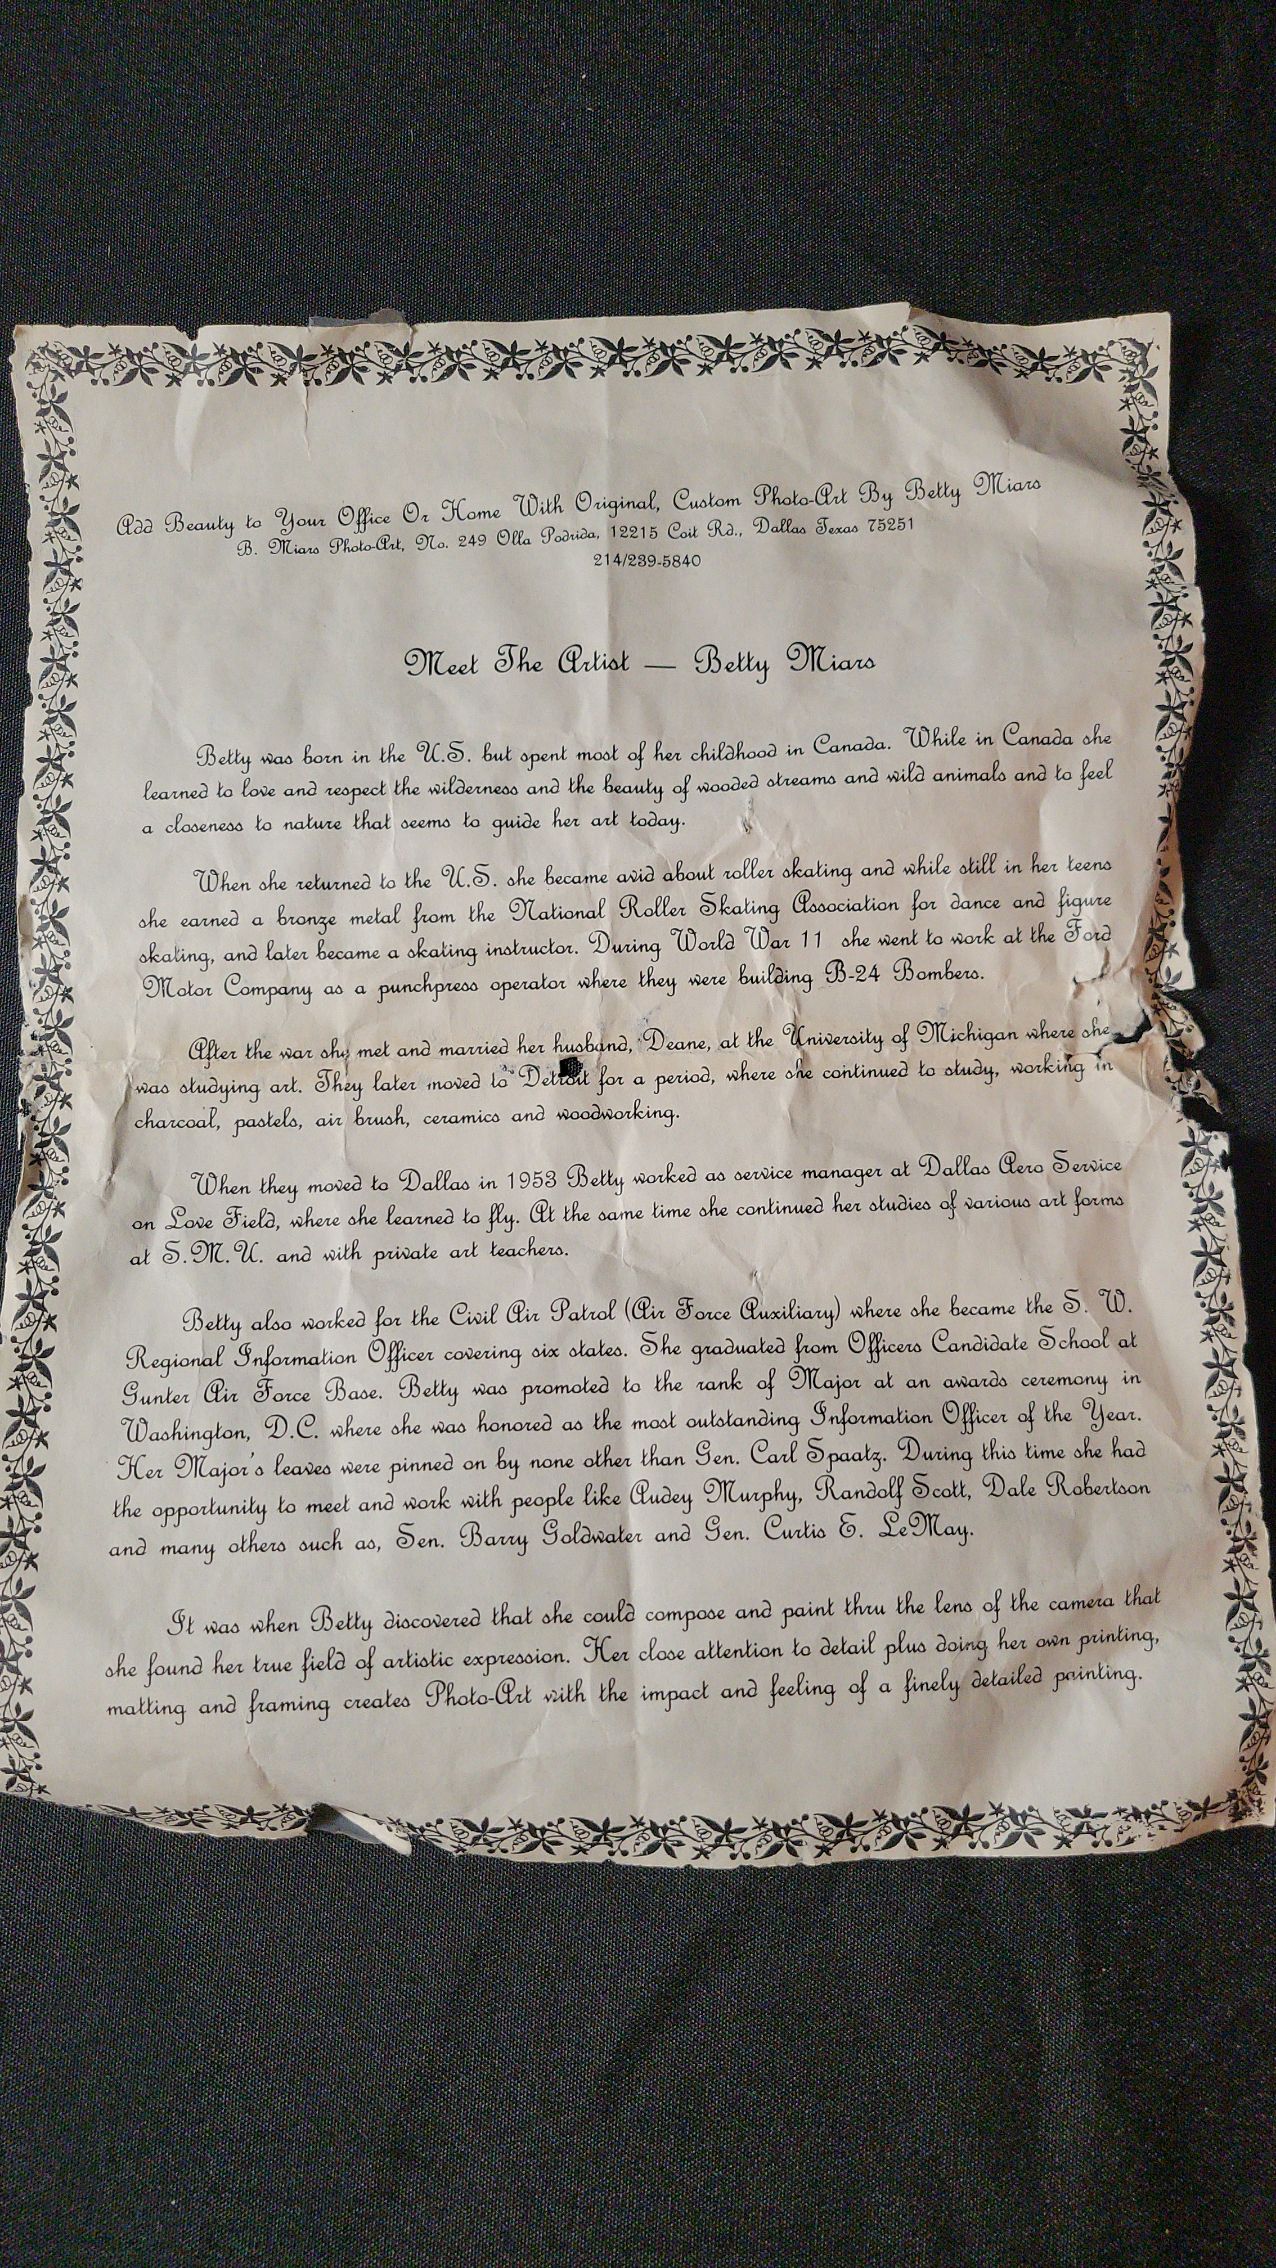 Add Beauty to Your Office Or Home With Original, Custom Photo-Art By Betty Miars
B. Miars Photo-Art, No. 249 Olla Podrida, 12215 Coit Rd., Dallas Texas 75251
214/239-5840
Meet The Artist — Betty Miars
Betty was born in the U.S. but spent most of her childhood in Canada. While in Canada she
learned to love and respect the wilderness and the beauty of wooded streams and wild animals and to feel
a closeness to nature that seems to guide her art today.
When she returned to the U.S. she became avid about roller skating and while still in her teens
she earned a bronze metal from the National Roller Skating Association for dance and figure
skating, and later became a skating instructor. During World War 11 she went to work at the Ford
Motor Company as a punchpress operator where they were building B-24 Bombers.
After the war she met and married her husband, Deane, at the University of Michigan where she
was studying art. They later moved to Detroit for a period, where she continued to study, working in
charcoal, pastels, air brush, ceramics and woodworking.
When they moved to Dallas in 1953 Betty worked as service manager at Dallas Aero Service
on Love Field, where she learned to fly. At the same time she continued her studies of various art forms
at S.M.U. and with private art teachers.
Betty also worked for the Civil Air Patrol (Air Force Auxiliary) where she became the S. W.
Regional Information Officer covering six states. She graduated from Officers Candidate School at
Gunter Air Force Base. Betty was promoted to the rank of Major at an awards ceremony in
Washington, D.C. where she was honored as the most outstanding Information Officer of the Year.
Her Major's leaves were pinned on by none other than Gen. Carl Spaatz. During this time she had
the opportunity to meet and work with people like Audey Murphy, Randolf Scott, Dale Robertson
and many others such as, Sen. Barry Goldwater and Gen. Curtis E. LeMay.
It was when Betty discovered that she could compose and paint thru the lens of the camera that
she found her true field of artistic expression. Her close attention to detail plus doing her own printing,
matting and framing creates Photo-Art with the impact and feeling of a finely detailed painting.